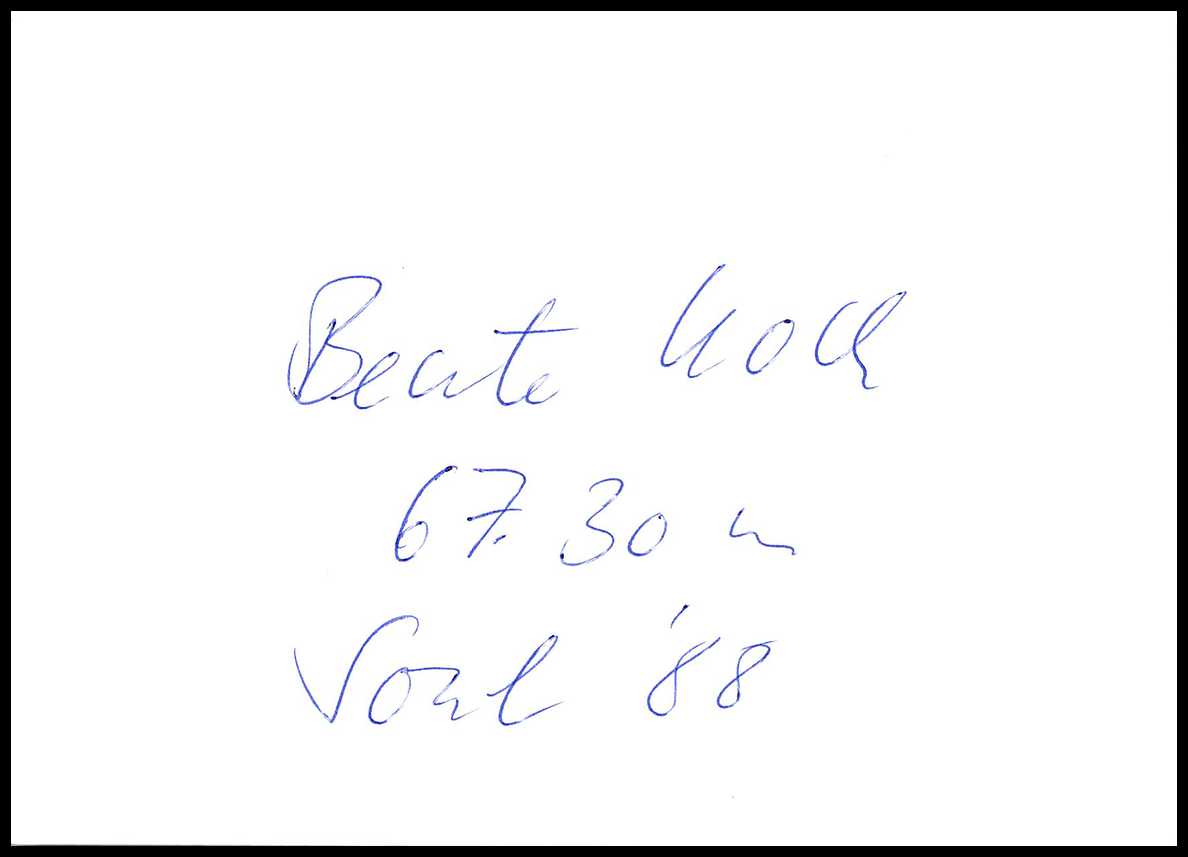 Beate Koch
67.30 m
Soul '88